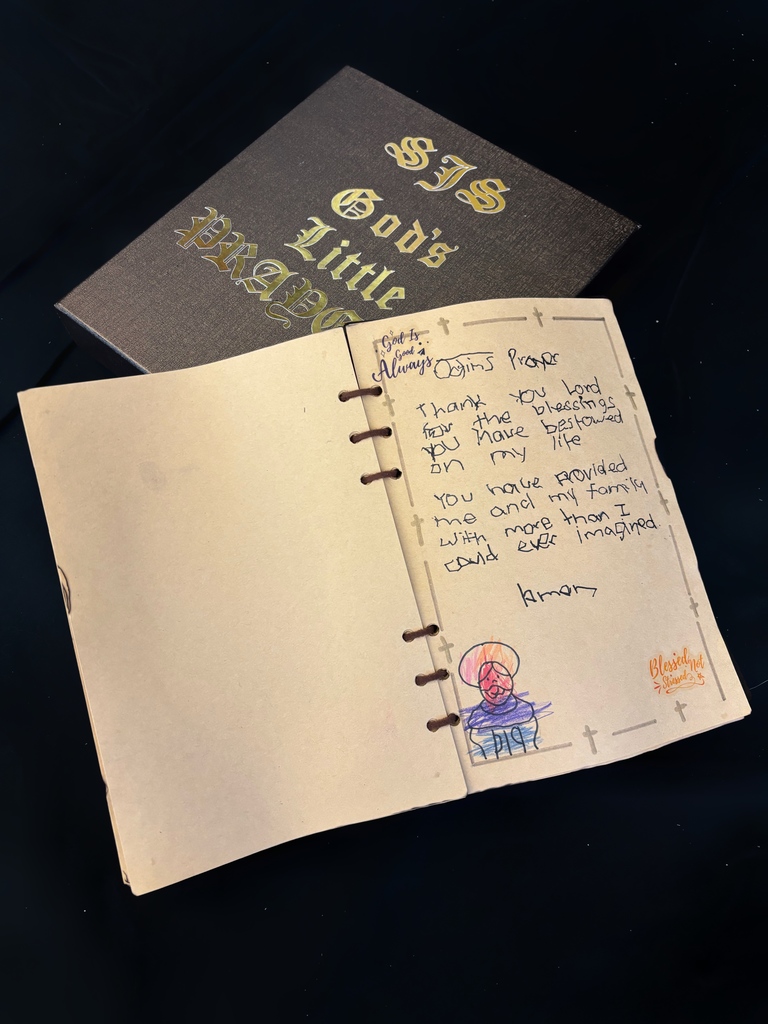 SJS
God's
Little
PRAY
God Is
Good
Always
Prayer
Thank you lord
for the blessings
you have bestowed
on my life
You have provided
me and my family
with more than I
could ever imagined
Amen
Blessed Not
Stressed